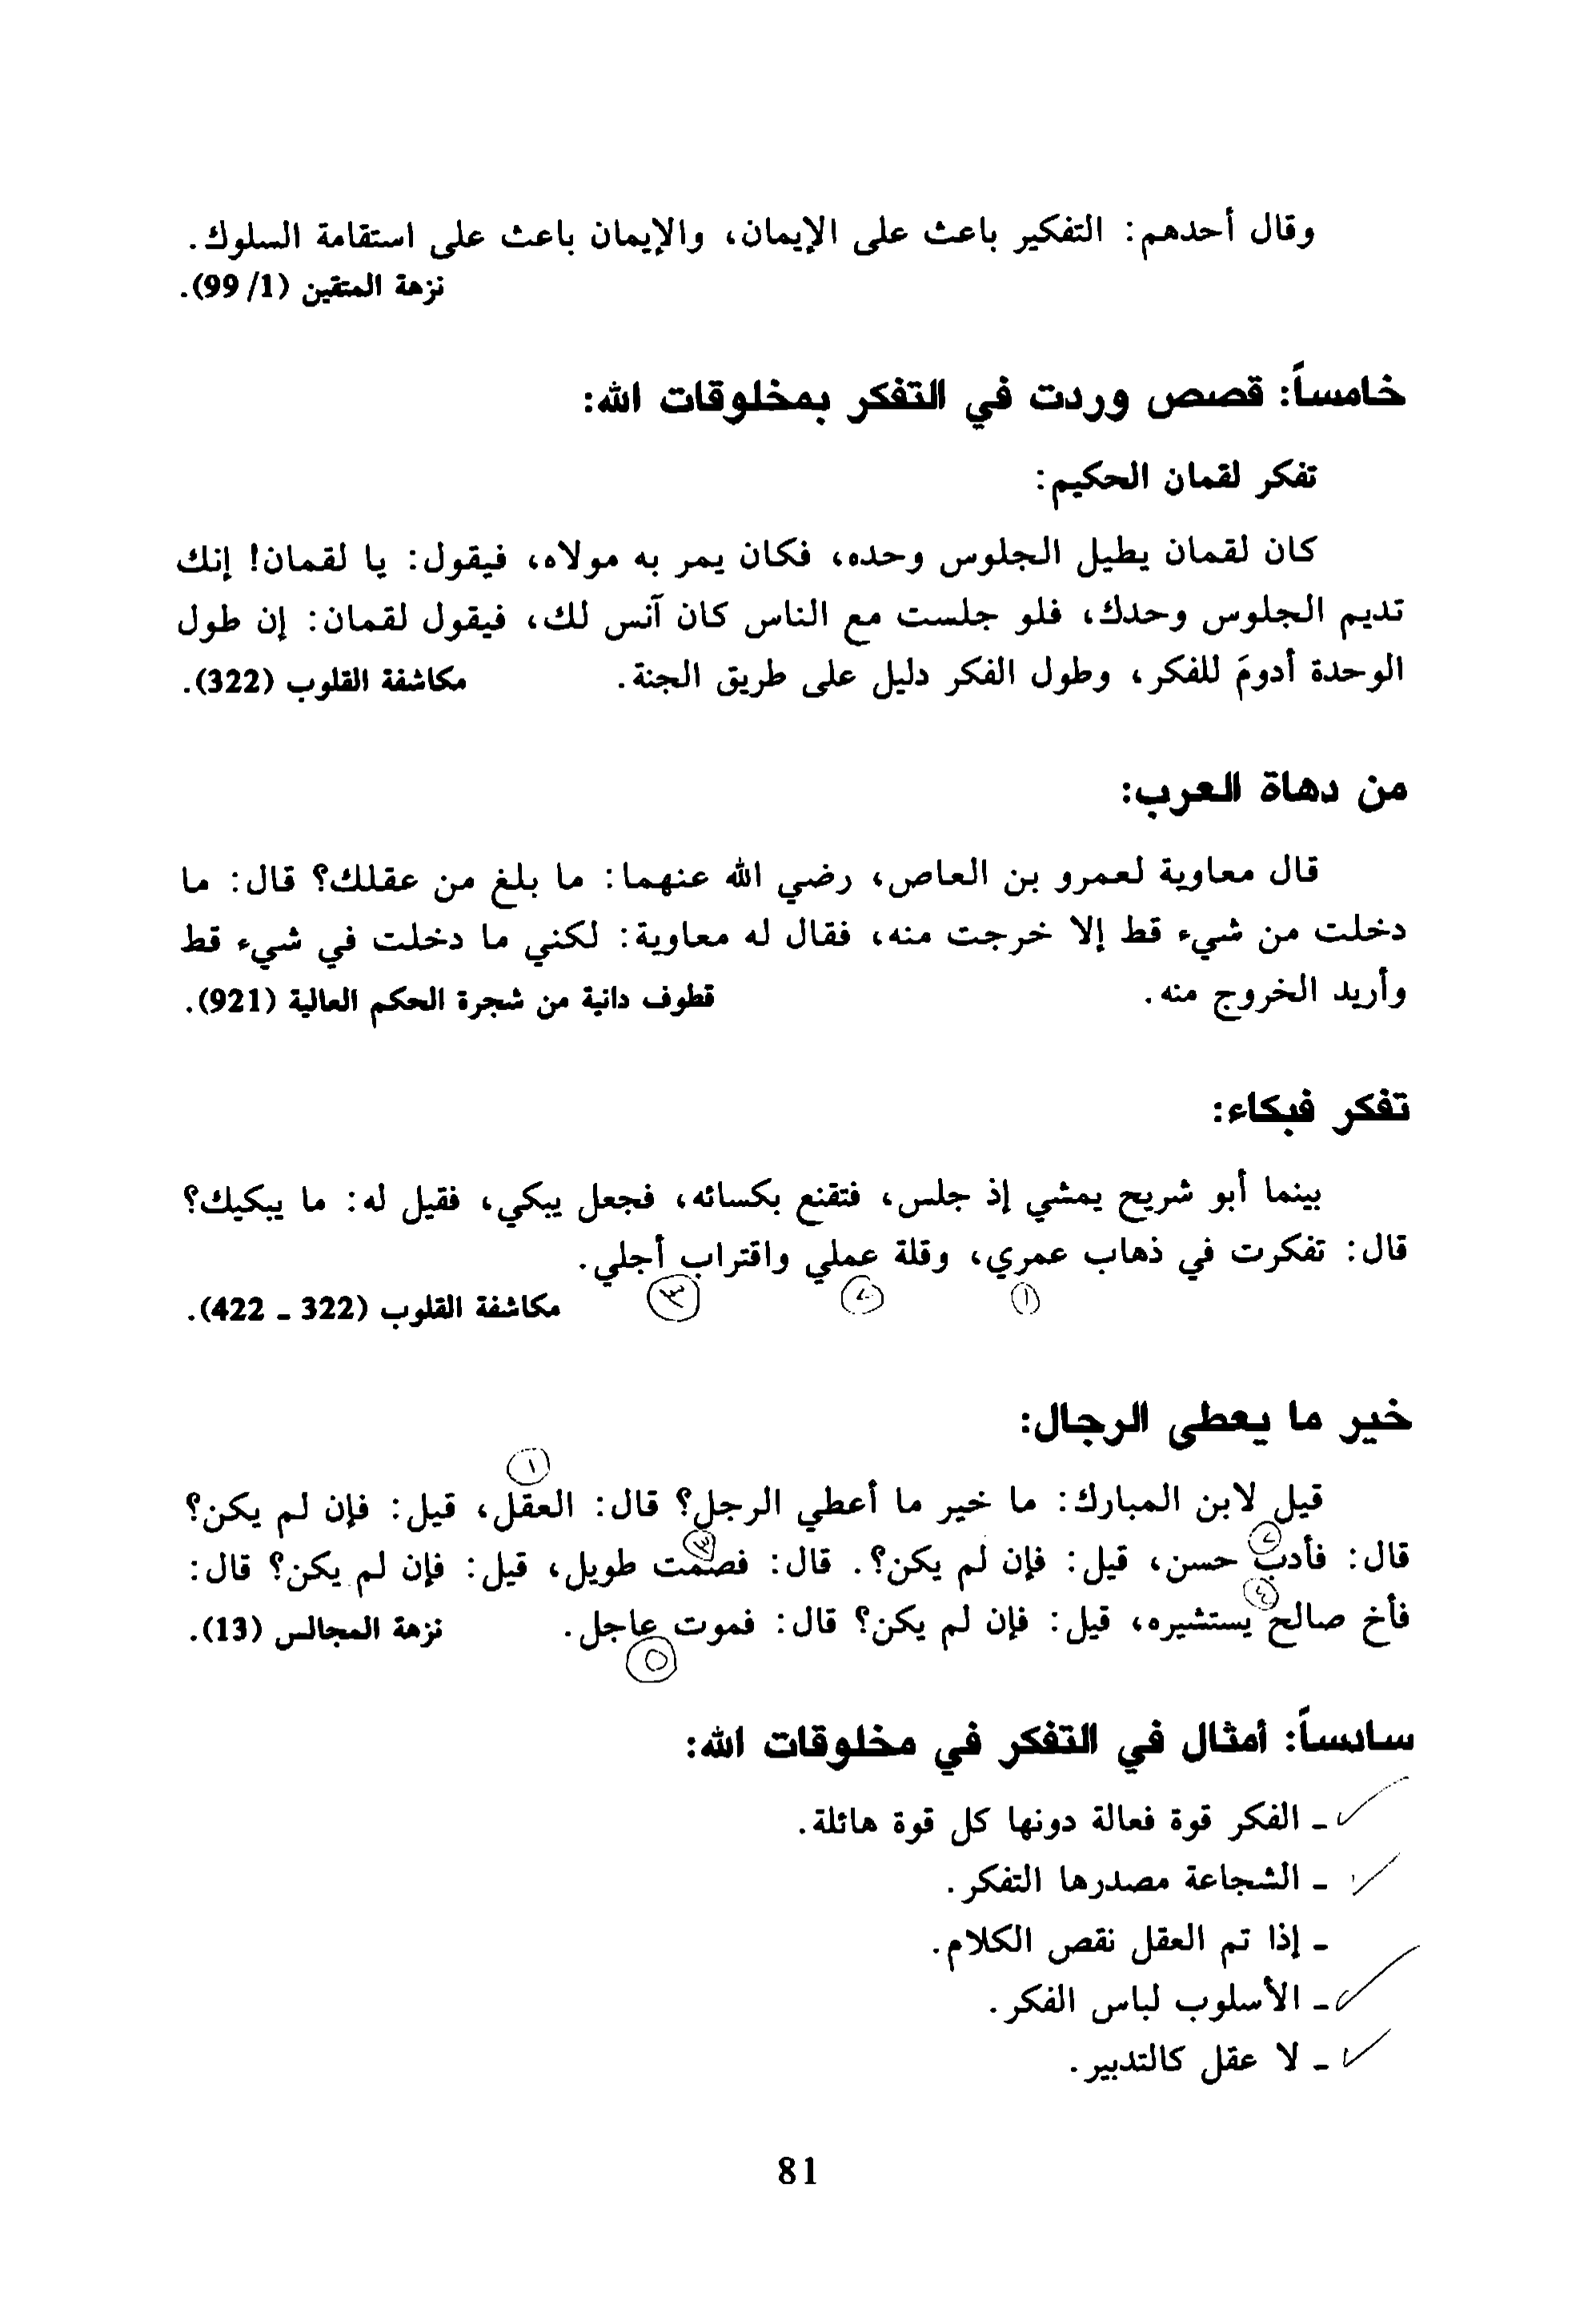 وقال أحدهم: التفكير باعث على الإيمان، والإيمان باعث على استقامة السلوك.
نزهة المتقين (1/ 99).
خامساً: قصص وردت في التفكر بمخلوقات الله:
تفكر لقمان الحكيم:
كان لقمان يطيل الجلوس وحده، فكان يمر به مولاه، فيقول: يا لقمان! إنك
تديم الجلوس وحدك، فلو جلست مع الناس كان آنس لك، فيقول لقمان: إن طول
الوحدة أدومَ للفكر، وطول الفكر دليل على طريق الجنة. مكاشفة القلوب (322).
من دهاة العرب:
قال معاوية لعمرو بن العاص، رضي الله عنهما: ما بلغ من عقلك؟ قال: ما
دخلت من شيء قط إلا خرجت منه، فقال له معاوية: لكني ما دخلت في شيء قط
وأريد الخروج منه. قطوف دانية من شجرة الحكم العالية (921).
تفكر فبكاء:
بينما أبو شريح يمشي إذ جلس، فتقنع بكسائه، فجعل يبكي، فقيل له: ما يبكيك؟
قال: تفكرت في ذهاب عمري، وقلة عملي واقتراب أجلي.
١ ٢ ٣
مكاشفة القلوب (322 - 422).
خير ما يعطى الرجال:
١
قيل لابن المبارك: ما خير ما أعطي الرجل؟ قال: العقل، قيل: فإن لم يكن؟
٢ ٣
قال: فأدب حسن، قيل: فإن لم يكن؟. قال: فصمت طويل، قيل: فإن لم يكن؟ قال:
٤
فأخ صالح يستشيره، قيل: فإن لم يكن؟ قال: فموت عاجل. نزهة المجالس (13).
٥
سادساً: أمثال في التفكر في مخلوقات الله:
- الفكر قوة فعالة دونها كل قوة هائلة.
- الشجاعة مصدرها التفكر.
- إذا تم العقل نقص الكلام.
- الأسلوب لباس الفكر.
- لا عقل كالتدبير.
81